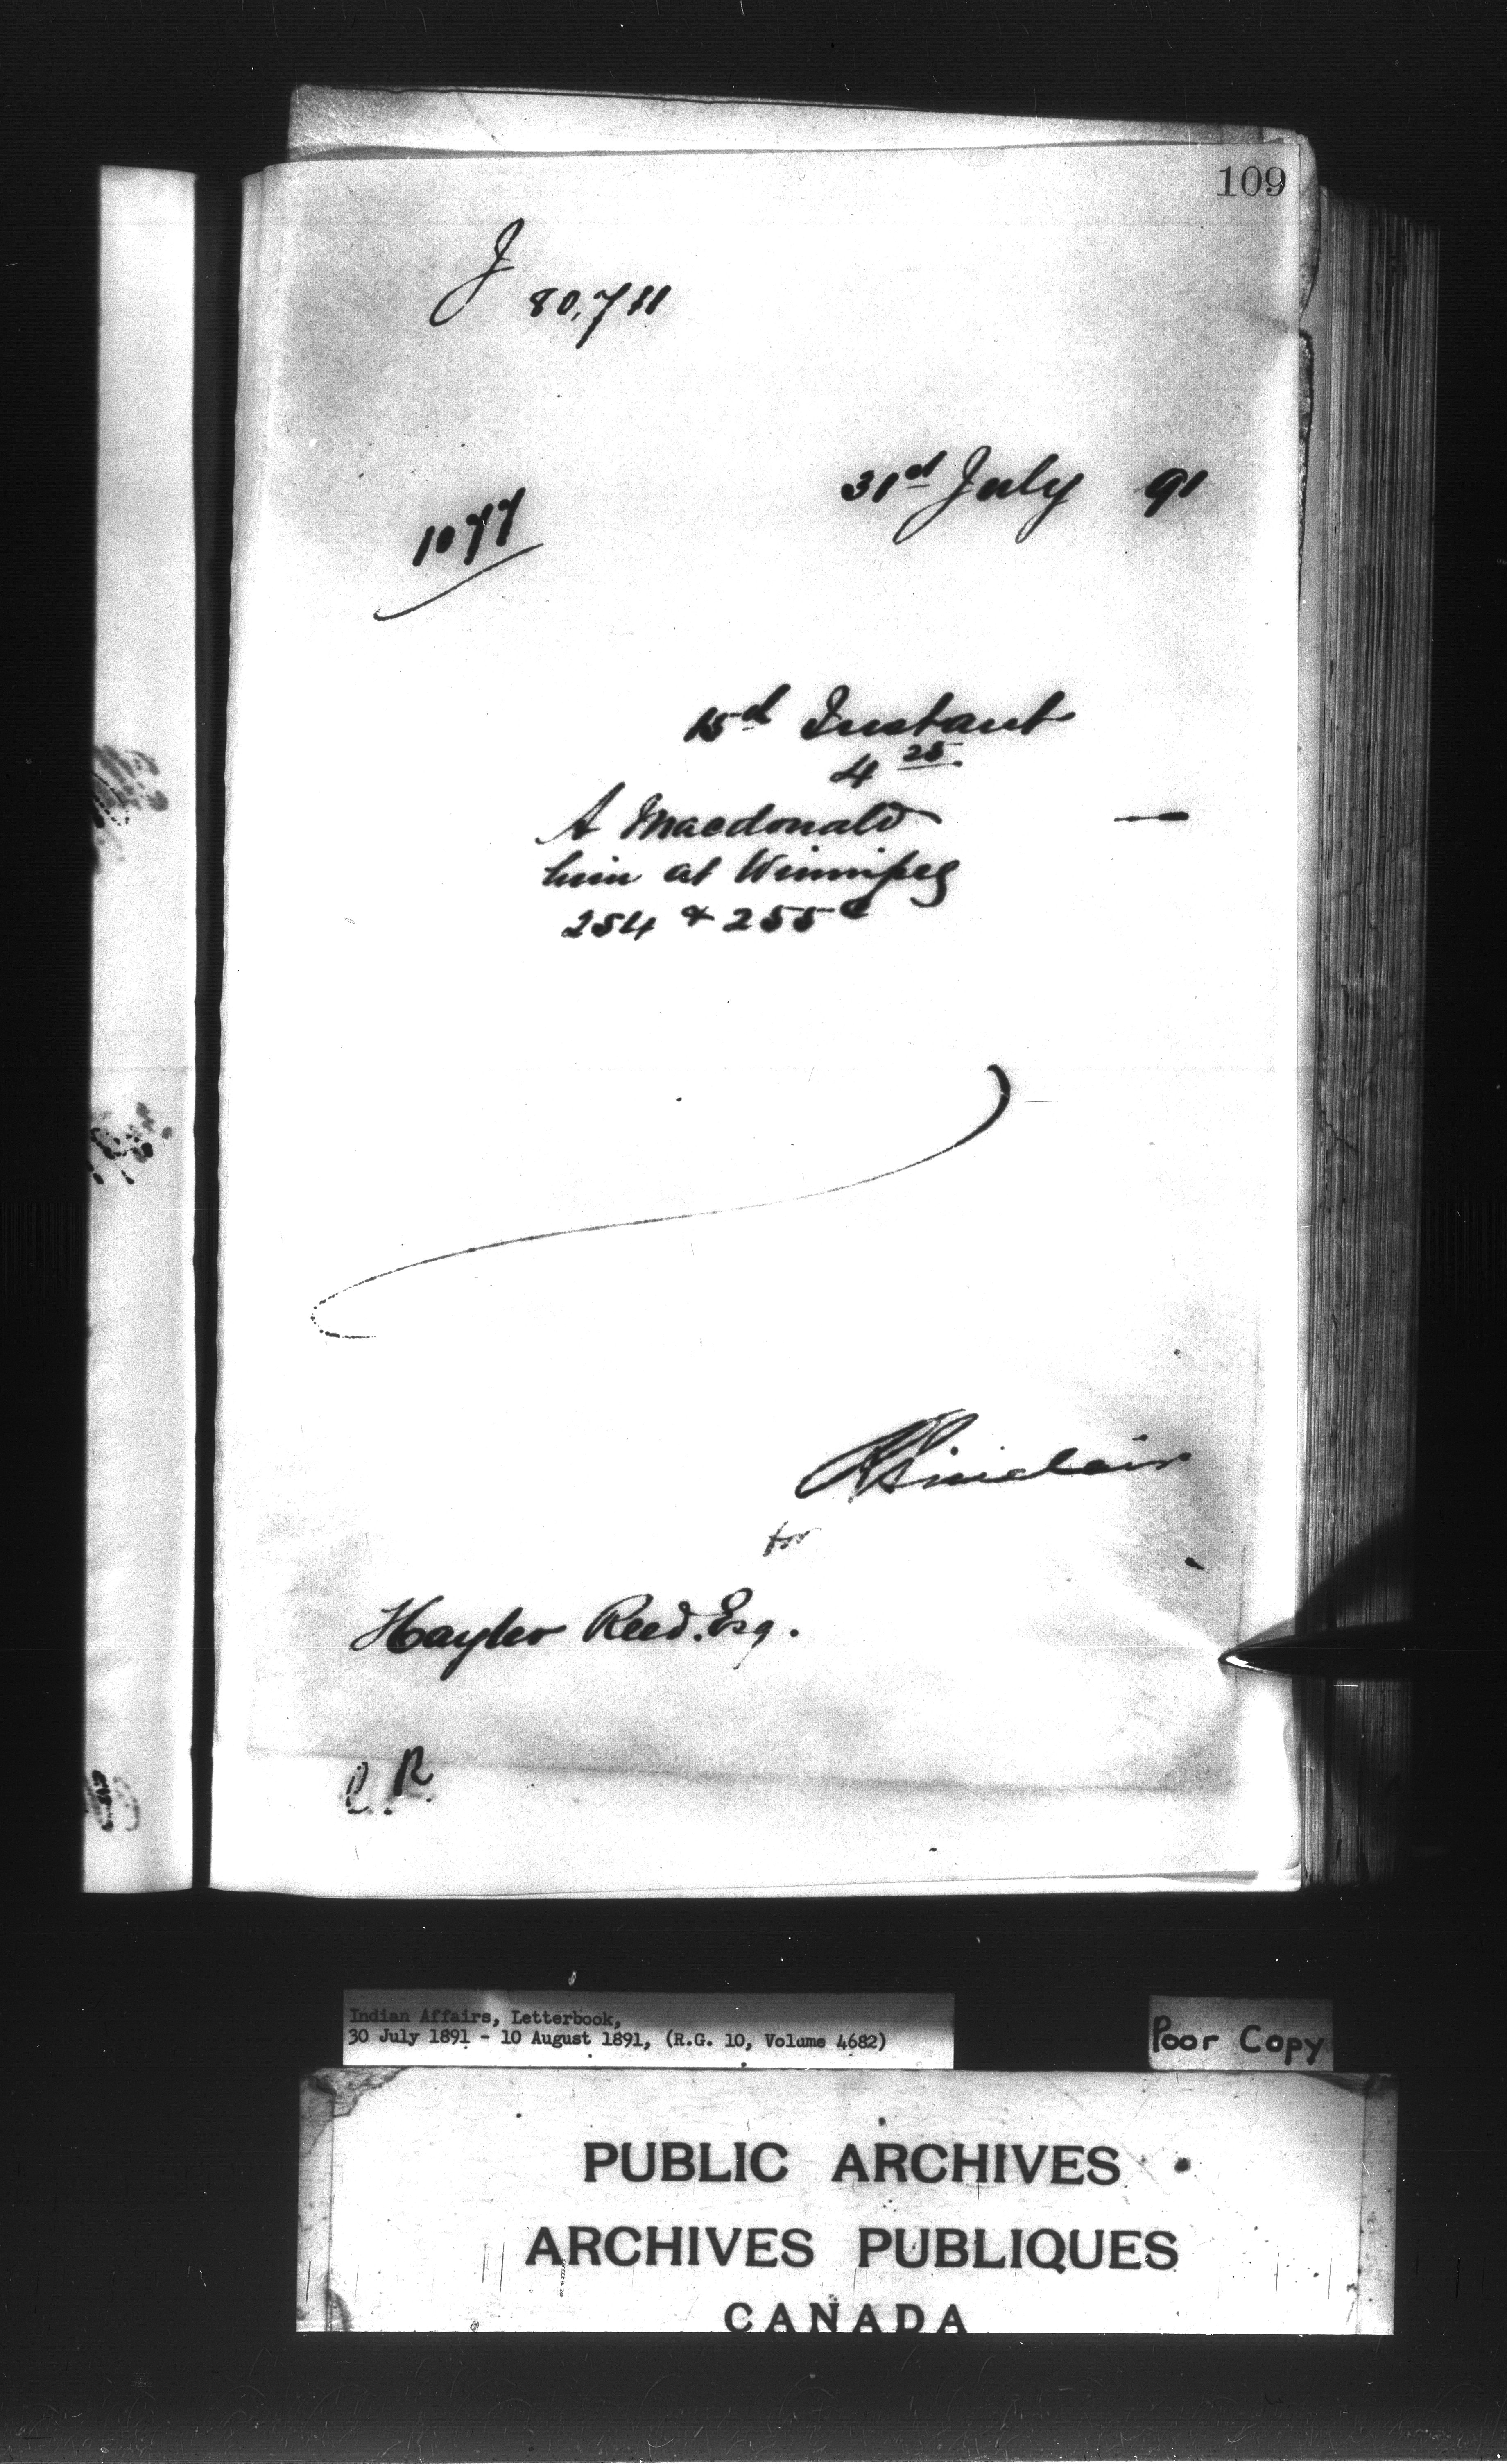 109
J 80,711
31st July 91
1077
15th Instant
4 25
A Macdonald —
him at Winnipeg
254 & 255 c
R Sinclair
for
Hayter Reed. Esq.
C. R.
Indian Affairs, Letterbook,
30 July 1891 - 10 August 1891, (R.G. 10, Volume 4682)
Poor Copy
PUBLIC ARCHIVES
ARCHIVES PUBLIQUES
CANADA